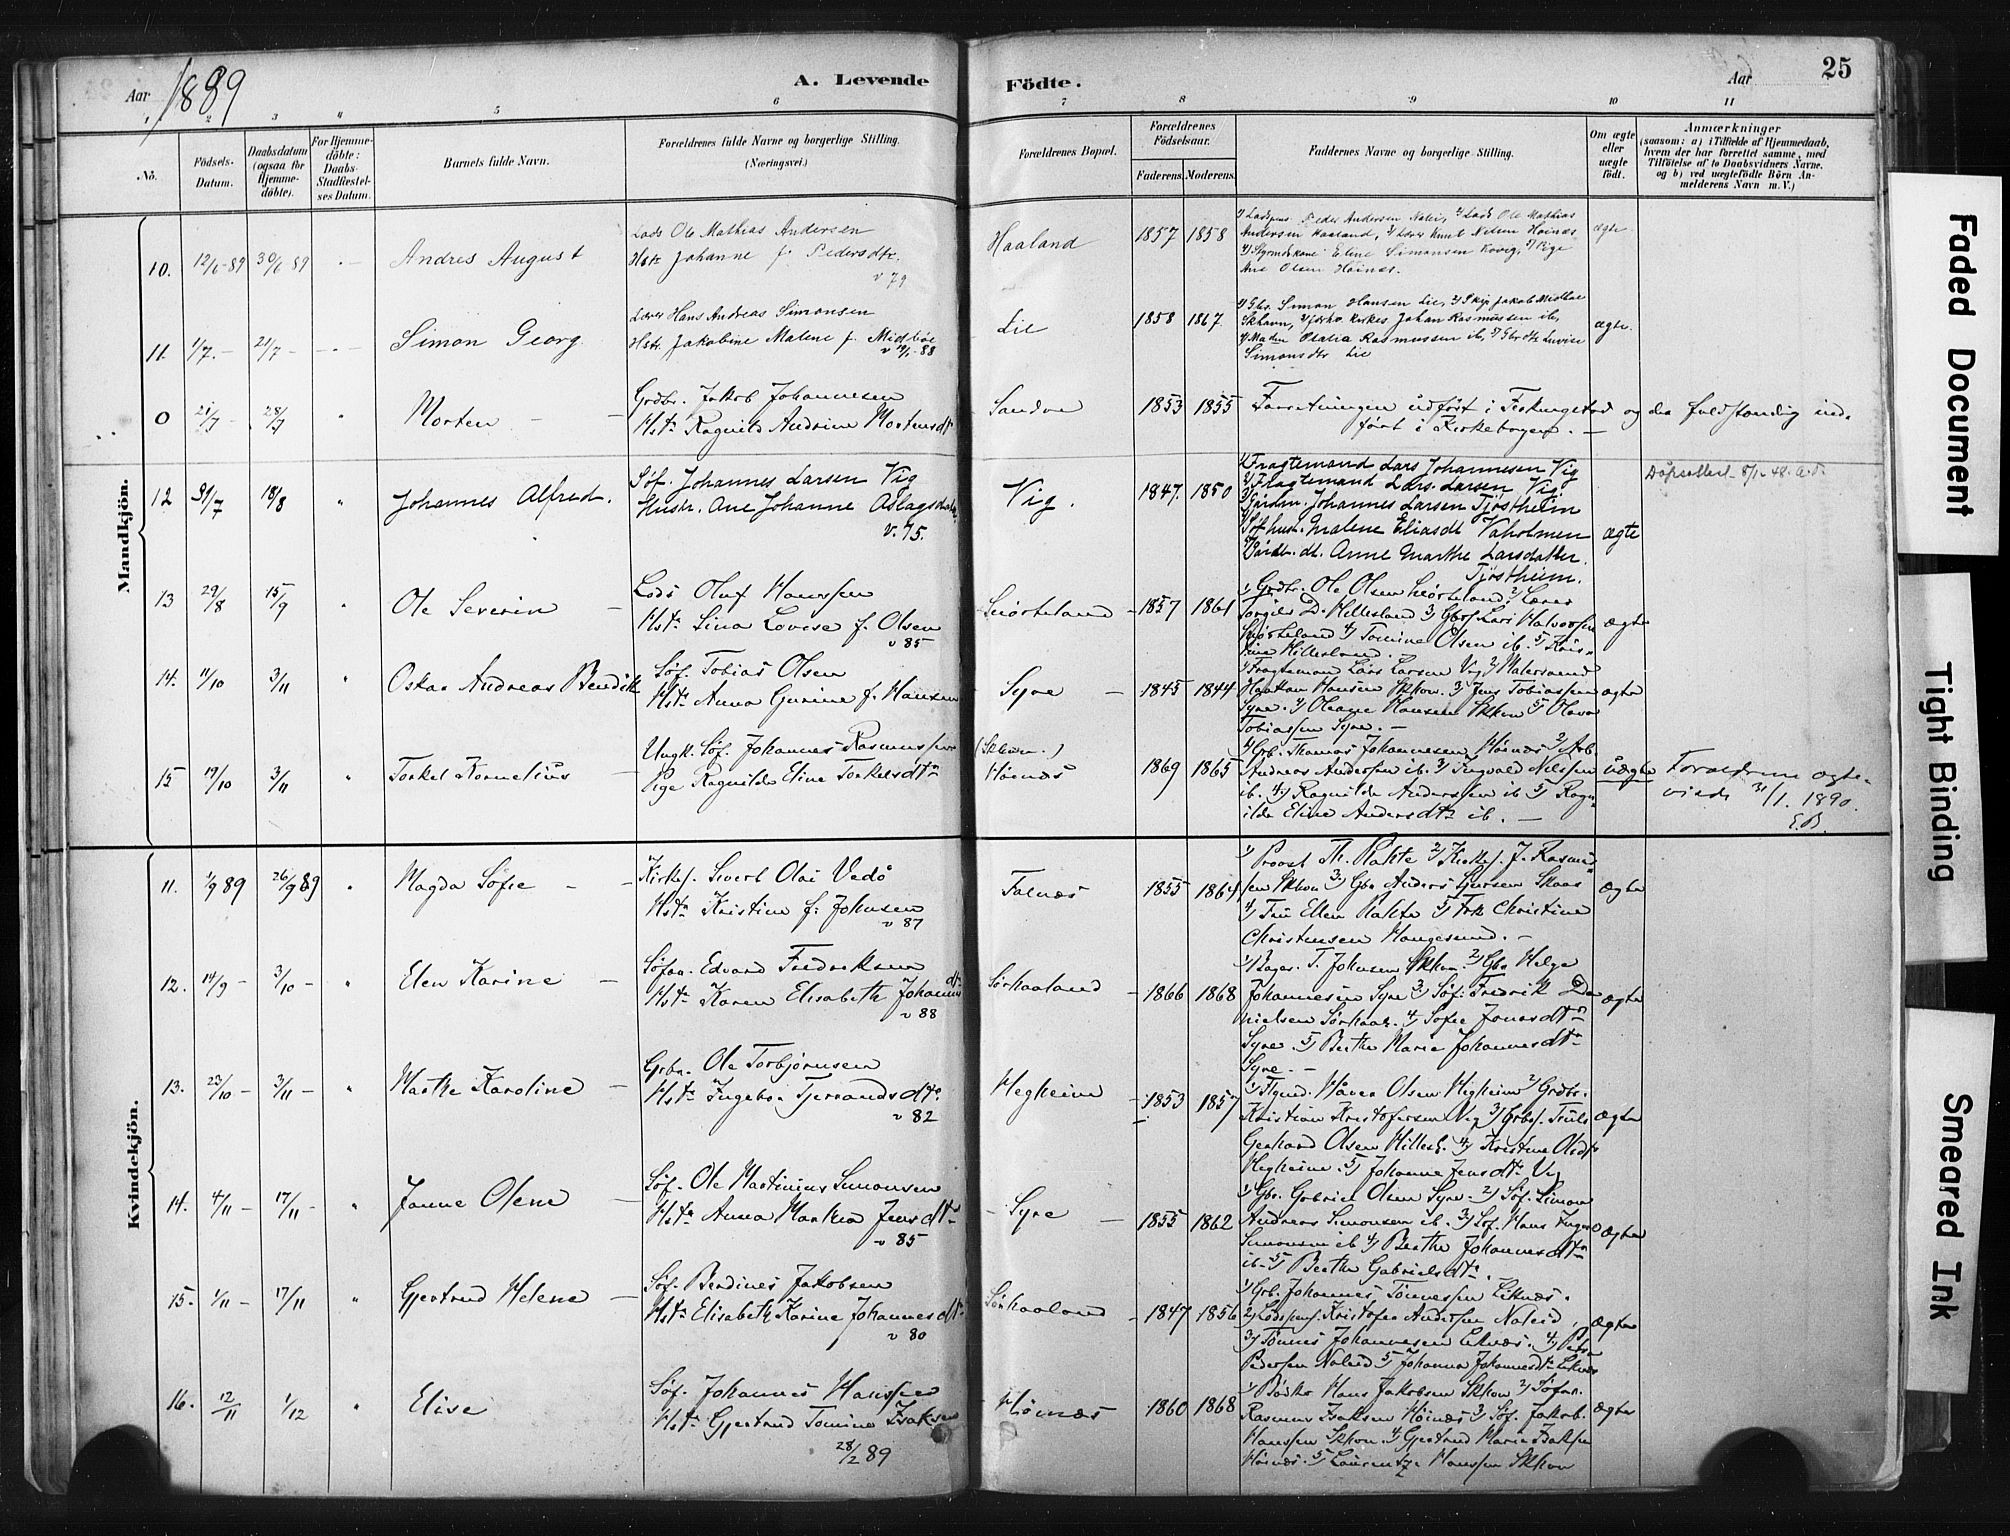 Aar 1889
A. Levende Födte.
Aar
25
1 2 3 4 5 6 7 8 9 10 11
No.
Födsels-Datum.
Daabsdatum (ogsaa for Hjemmedöbte).
For Hjemmedöbte: Daabs-Stadfæstelses Datum.
Barnets fulde Navn.
Forældrenes fulde Navne og borgerlige Stilling. (Næringsvei.)
Forældrenes Bopæl.
Forældrenes Födselsaar.
Faderens. Moderens.
Faddernes Navne og borgerlige Stilling.
Om ægte eller uægte födt.
Anmærkninger
(saasom: a) i Tilfælde af Hjemmedaab,
hvem der har forrettet samme, med
Tilföielse af to Daabsvidners Navne.
og b) ved uægtefödte Börn An-
melderens Navn m. V.)
Mandkjön.
10. 12/6-89 30/6 89 Andres August
Lods Ole Mathias Andersen
Hstr Johanne f. Pedersdtr.
v 79
Haaland 1857 1858
Andersen Haaland, 3) Lærer Knut Nilsen Høinæs
Ane Olsen Høinæs.
ægte
11. 1/7 - 21/7 - Simon Georg
Lærer Hans Andreas Simonsen
Hstr Jakobine Malene f. Midbøe
v 19/1-88
Lie 1858 1867
1) Gbr. Simon Hansen Lie, 2) Skip Jakob Midbøe
Skhavn, 3) forhv. Kirkes Johan Rasmussen ib,
Simonsdtr Lie
ægte.
0 21/7 - 28/7 " Morten
Grdbr. Jakob Johannesen
Hstr Ragnild Andrine Mortensdt
Sandve 1853 1855
Forretningen udført i Ferkingestad og der fuldstændig ind-
ført i Kirkebogen. -
12 31/7 18/8 " Johannes Alfred.
Søf. Johannes Larsen Vig
Hustr. Ane Johanne Aslagsdatter
v. 75.
Vig. 1847. 1850
1) Fragtemand Lars Johannesen Vig
2) Fragtemand Lars Larsen Vig
3) Gårdm. Johannes Larsen Tjøstheim
4) Søf hust. Malene Eliasdt Vaholmen
5) Gårdb. dt. Anne Marthe Larsdatter
Tjøstheim.
ægte
Dåpsattest 8/1-48.
13 29/8 15/9 " Ole Severin
Lods Oluf Hanssen
Hstr Sina Lovise f. Olsen
v 85
1857 1861
1) Grdbr. Ole Olsen 2) Lærer
Torgils D. Hillesland 3) Lars Halvorsen
4) Tomine Olsen ib. 5)
Hillesland. -
ægte
14. 11/10 3/11 " Oskar Andreas Bendik
Søf. Tobias Olsen
Hstr Anna Gurine f. Hansen
Syre - 1845 1844
1) Fragteman Lars Larsen Vig 2) Matersvend
Haakon Hansen Skhvn. 3) Jens Tobiassen
Syre. 4) Oleane Hansen Skhvn 5) Olava
Tobiassen Syre. -
ægte
15 19/10 3/11 " Torkel Kornelius
Ungk. Søf. Johannes Rasmussen
Pige Ragnilde Eline Torkelsdtr
(Skhavn.)
Høinæs 1869 1865
1) Grb. Thomas Johannesen Høinæs 2) Arb.
Andreas Andersen ib. 3) Ingvald Nilssen
ib. 4) Ragnilde Anderssen ib 5) Ragn-
ilde Eline Andersdtr ib. -
uægte
Forældrene ægte-
viede 31/1. 1890.
E.B.
Kvindekjön.
11. 1/9 89 26/9 89 " Magda Sofie
Kirkes. Sivert Olai Vedø
Hstr Kristine f. Johnsen
v 87
Falnæs 1855 1864
1) Provst Th. Rahte 2) Kirkes. J. Rasmus-
sen Skhvn 3) Gbr Anders Skaar
4) Fru Ellen Rahte 5) Frk Christine
Christensen Haugesund. -
ægte
12. 14/9 - 3/10 - " Elen Karine
Søfar. Edvard Fredriksen
Hstr Karen Elisabeth Johannesdtr
v 88
Sørhaaland 1866 1868
1) Bager. T. Johnsen Skhvn. 2) Gbr Helge
Johannesen Syre 3) Søf. Fredrik Da-
nielsen Sørhaal. 4) Sofie Jonasdtr
Syre 5) Berthe Marie Johannesdtr
Syre. -
ægte
13. 23/10 - 3/11 - " Marthe Karoline
Grbr. Ole Torbjørnsen
Hstr Ingebor Tjerandsdtr
v 82
Hegheim 1853 1857
1) Håver Olsen Hegheim 2) Grdbr.
Kristian Kristofersen Vig 3) Grbs. Truls
Gerhard Olsen Hillesl. 4) Kristine Olsdtr
Hegheim. 5) Johanne Jensdtr Vig
ægte
14. 4/11 - 17/11 - " Janne Olene
Søf. Ole Martinius Simonsen
Hstr Anna Marthea Jensdtr
v 85
Syre 1855 1862
1) Gbr. Gabriel Olsen Syre. 2) Søf. Simon
Andreas Simonsen ib. 3) Søf. Hans Inger
Simonsen ib 4) Berthe Johannesdtr
ib. 5) Berthe Gabrielsdtr.
ægte
15. 1/11 - 17/11 " Gjertrud Helene
Søf. Berdines Jakobsen
Hstr Elisabeth Karine Johannesdtr
v 80
Sørhaaland 1847 1856
1) Grb. Johannes Tønnessen Liknæs.
2) Lodspens. Kristofer Andersen Naleid,
3) Tønnes Johannesen Liknæs. 4) Petra
Pedersen Naleid 5) Johanna Johannesdtr Liknæs
ægte
16. 12/11 1/12 " Elise
Søf. Johannes Hanssen
Hstr Gjertrud Tomine Isaksen
28/2 89
Høinæs 1860 1868
1) Bødker Hans Jakobsen Skhvn 2) Søfar.
Rasmus Isaksen Høinæs 3) Søf. Jakob.
Hanssen Skhvn. 4) Gjertrud Marie Isaksen
Høinæs. 5) Laurentze Hanssen Skhvn
ægte
Faded Document
Tight Binding
Smeared Ink